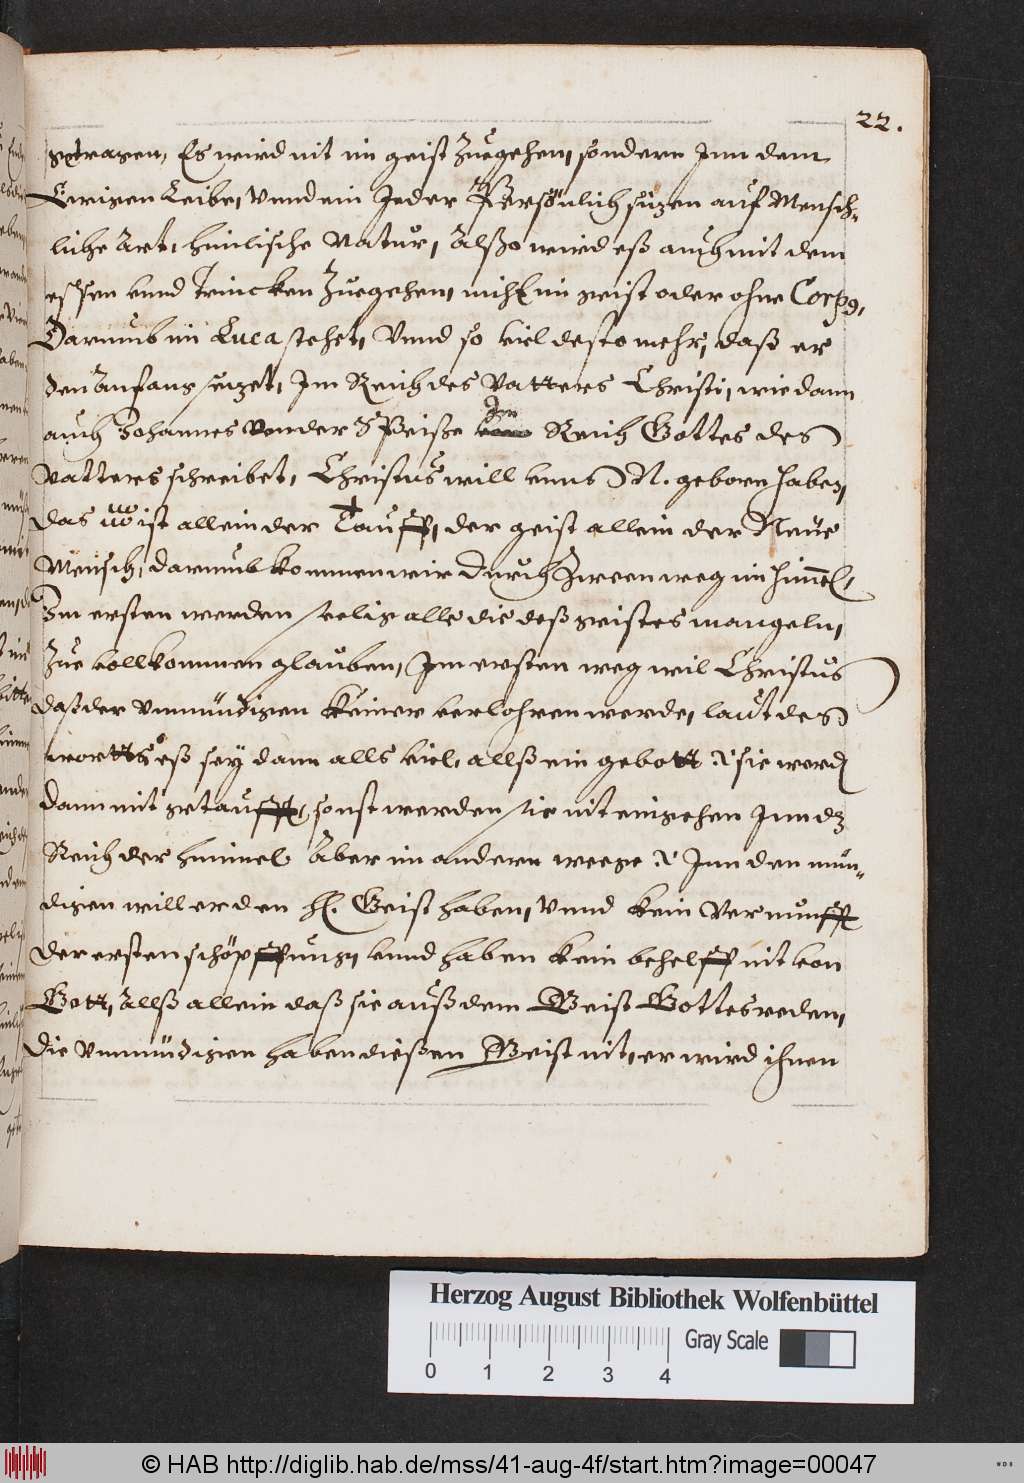 22.
getragen, Es wird nit im geist Zuegehen, sondern Jnn dem
Ewigen Leibe, Vnnd ein Jeder Persönlich sitzen auf Mensch-
liche Art, himlische Natur, Alßo wird eß auch mit dem
essen vnnd Trincken Zuegehen, nicht im geist oder ohne Corpus,
Darumb im Luca stehet, Vnnd so viel desto mehr, daß er
den Anfang setzet, Jm Reich des Vatters Christi, wie dann
auch Johannes von der Speiße Jm Reich Gottes des
Vatters schreibet, Christus will vnns N. geborn haben,
das ist allein der Tauff, der geist allein der Neue
Mensch, darumb kommen wir durch Zween weg im himel,
Jm ersten werden selig alle die deß geistes mangeln,
Zue vollkommen glauben, Jm ersten weg wil Christus
daß der Vnmündigen Keiner verlohren werde, laut des
wortts eß sey dann alls viel, allß ein gebott sie werden
dann nit getaufft, sonst werden sie nit eingehen Jnn dz
Reich der himmel. Aber im andern weege Jnn den mün-
digen will er den H. Geist haben, Vnnd kein Vernunfft
der ersten schöpffung, vnnd haben kein behelff nit von
Gott, Allß allein daß sie auß dem Geist Gottes reden,
Die Vnmündigen haben dießen Geist nit, er wird ihnen
Herzog August Bibliothek Wolfenbüttel
0 1 2 3 4 Gray Scale
© HAB http://diglib.hab.de/mss/41-aug-4f/start.htm?image=00047